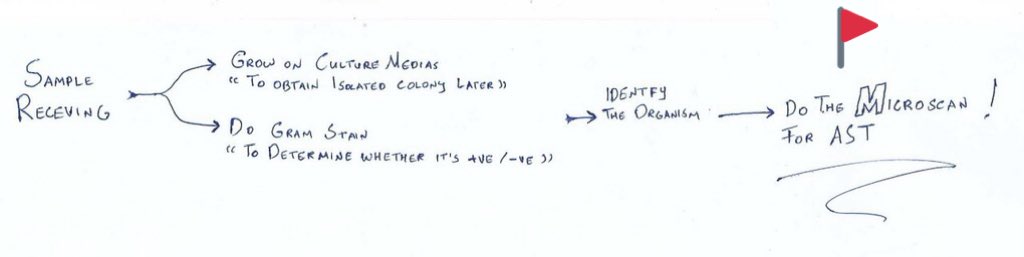 Sample
Receving
Grow on Culture Medias
“ To obtain Isolated colony Later ”
Do Gram Stain
“ To Determine whether it's +ve / -ve ”
Identfy
The Organism
Do The Microscan !
For AST